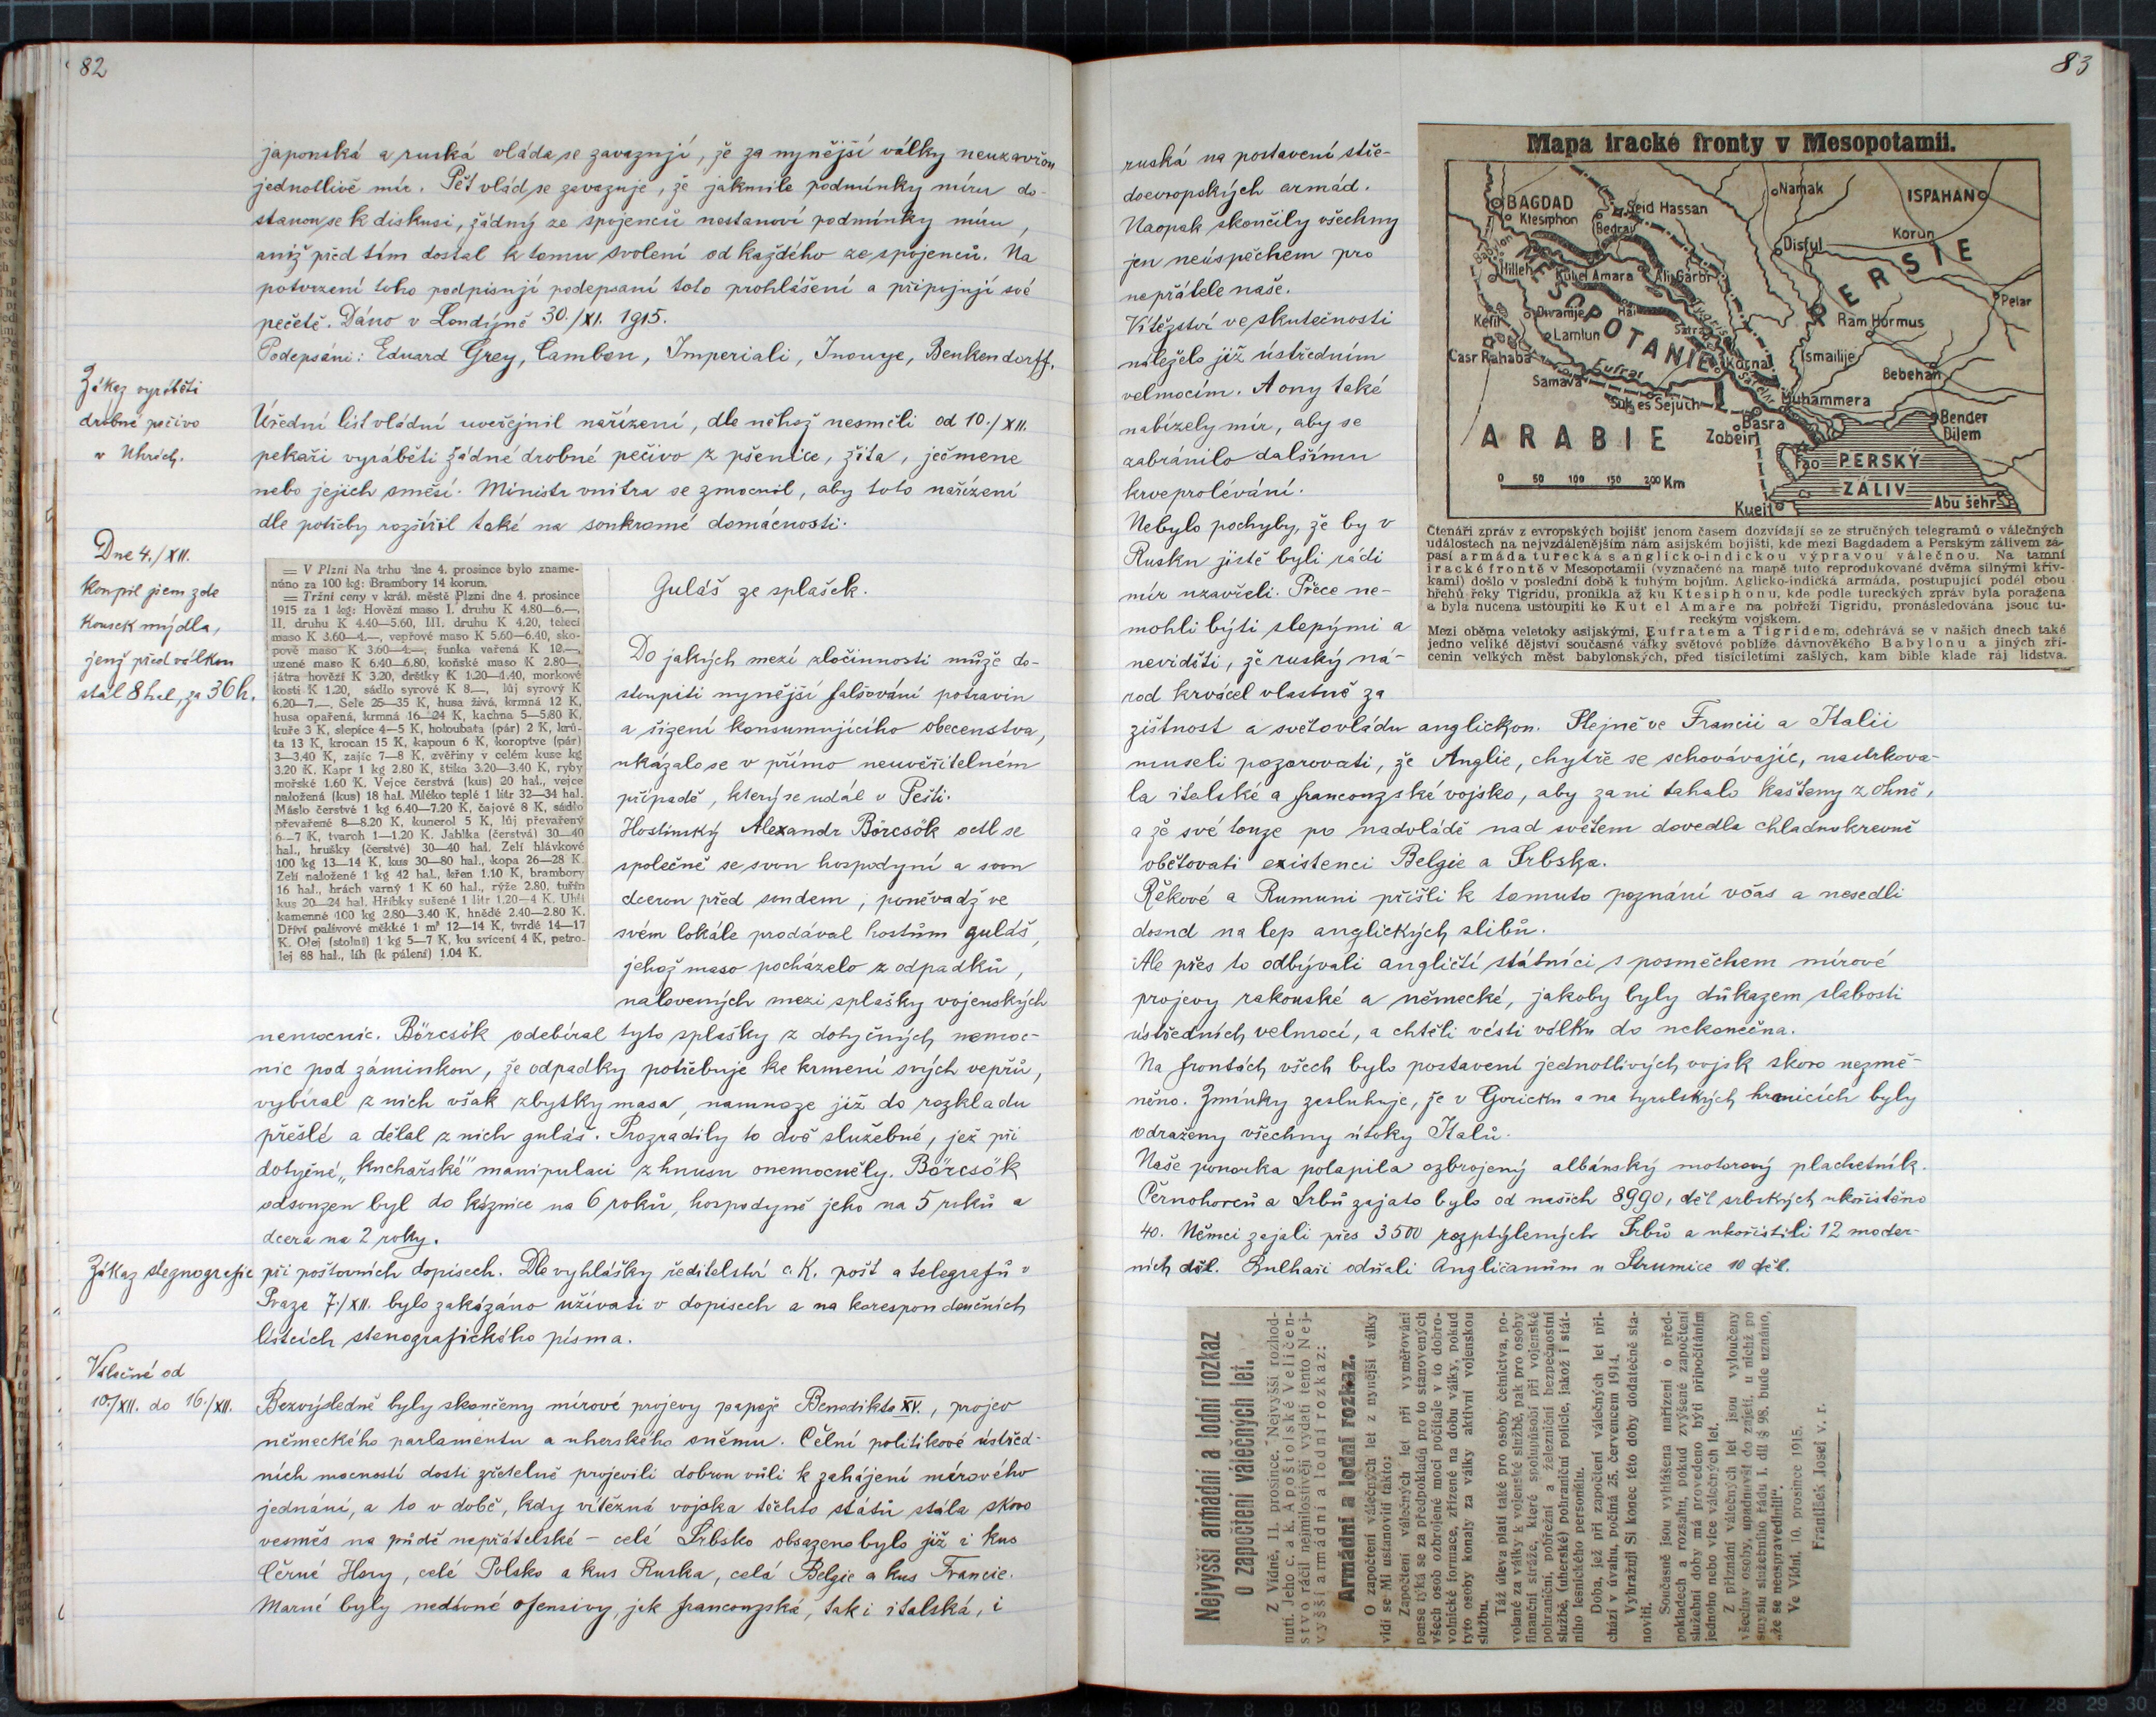 82
japonská a ruská vláda se zavazují, že za nynější války neuzavřou
jednotlivě mír. Pět vlád se zavazuje, že jakmile podmínky míru do-
stanou se k diskusi, žádný ze spojenců nestanoví podmínky míru,
aniž před tím dostal k tomu svolení od každého ze spojenců. Na
potvrzení toho podpisují podepsaní toto prohlášení a připojují své
pečetě. Dáno v Londýně 30./XI. 1915.
Podepsáni: Eduard Grey, Cambon, Imperiali, Inouye, Benkendorff.
Zákaz vyráběti
drobné pečivo
v Uhrich.
Úřední list vládní uveřejnil nařízení, dle něhož nesměli od 10./XII.
pekaři vyráběti žádné drobné pečivo z pšenice, žita, ječmene
nebo jejich směsí. Ministr vnitra se zmocnil, aby toto nařízení
dle potřeby rozšířil také na soukromé domácnosti.
Dne 4./XII.
koupil jsem zde
kousek mýdla,
jenž před válkou
stál 8 hal, za 36 h.
= V Plzni Na trhu dne 4. prosince bylo zname-
náno za 100 kg: Brambory 14 korun.
= Tržní ceny v král. městě Plzni dne 4. prosince
1915 za 1 kg: Hovězí maso I. druhu K 4.80—6.—,
II. druhu K 4.40—5.60, III. druhu K 4.20, telecí
maso K 3.60—4.—, vepřové maso K 5.60—6.40, sko-
pové maso K 3.60—4.—, šunka vařená K 12.—,
uzené maso K 6.40—6.80, koňské maso K 2.80—,
játra hovězí K 3.20, drštky K 1.20—1.40, morkové
kosti K 1.20, sádlo syrové K 8.—, lůj syrový K
6.20—7.—, Sele 25—35 K, husa živá, krmná 12 K,
husa opařená, krmná 16—24 K, kachna 5—5.80 K,
kuře 3 K, slepice 4—5 K, holoubata (pár) 2 K, krů-
ta 13 K, krocan 15 K, kapoun 6 K, koroptve (pár)
3—3.40 K, zajíc 7—8 K, zvěřiny v celém kuse kg
3.20 K. Kapr 1 kg 2.80 K, štika 3.20—3.40 K, ryby
mořské 1.60 K. Vejce čerstvá (kus) 20 hal., vejce
naložená (kus) 18 hal. Mléko teplé 1 litr 32—34 hal.
Máslo čerstvé 1 kg 6.40—7.20 K, čajové 8 K, sádlo
převařené 8—8.20 K, kunerol 5 K, lůj převařený
6—7 K, tvaroh 1—1.20 K. Jablka (čerstvá) 30—40
hal., hrušky (čerstvé) 30—40 hal. Zelí hlávkové
100 kg 13—14 K, kus 30—80 hal., kopa 26—28 K.
Zelí naložené 1 kg 42 hal., křen 1.10 K, brambory
16 hal., hrách varný 1 K 60 hal., rýže 2.80, tuřín
kus 20—24 hal. Hříbky sušené 1 litr 1.20—4 K. Uhlí
kamenné 100 kg 2.80—3.40 K, hnědé 2.40—2.80 K.
Dříví palivové měkké 1 m³ 12—14 K, tvrdé 14—17
K. Olej (stolní) 1 kg 5—7 K, ku svícení 4 K, petro-
lej 88 hal., líh (k pálení) 1.04 K.
Guláš ze splašek.
Do jakých mezí zločinnosti může do-
stoupiti nynější falšování potravin
a šizení konsumujícího obecenstva,
ukázalo se v přímo neuvěřitelném
případě, který se udál v Pešti.
Hostinský Alexandr Börcsök octl se
společně se svou hospodyní a svou
dcerou před soudem, poněvadž ve
svém lokále prodával hostům guláš,
jehož maso pocházelo z odpadků,
nalovených mezi splašky vojenských
nemocnic. Börcsök odebíral tyto splašky z dotyčných nemoc-
nic pod záminkou, že odpadky potřebuje ke krmení svých vepřů,
vybíral z nich však zbytky masa, namnoze již do rozkladu
přešlé a dělal z nich guláš. Prozradily to dvě služebné, jež při
dotyčné „kuchařské" manipulaci z hnusu onemocněly. Börcsök
odsouzen byl do káznice na 6 roků, hospodyně jeho na 5 roků a
dcera na 2 roky.
Zákaz stegnografie při poštovních dopisech. Dle vyhlášky ředitelství c. K. pošt a telegrafů v
Praze 7./XII. bylo zakázáno užívati v dopisech a na korespondenčních
lístcích stenografického písma.
Válečné od
10./XII. do 16./XII.
Bezvýsledně byly skončeny mírové projevy papeže Benedikta XV., projev
německého parlamentu a uherského sněmu. Čelní politikové ústřed-
ních mocností dosti zřetelně projevili dobrou vůli k zahájení mírového
jednání, a to v době, kdy vítězná vojska těchto států stála skoro
vesměs na půdě nepřátelské – celé Srbsko obsazeno bylo již i kus
Černé Hory, celé Polsko a kus Ruska, celá Belgie a kus Francie.
Marné byly nedávné ofensivy, jak francouzská, tak i italská, i
83
ruská na postavení stře-
doevropských armád.
Naopak skončily všechny
jen neúspěchem pro
nepřátele naše.
Vítězství ve skutečnosti
náleželo již ústředním
velmocím. A ony také
nabízely mír, aby se
zabránilo dalšímu
krveprolévání.
Nebylo pochyby, že by v
Rusku jistě byli rádi
mír uzavřeli. Přece ne-
mohli býti slepými a
neviděti, že ruský ná-
rod krvácel vlastně za
zištnost a světovládu anglickou. Stejně ve Francii a Italii
museli pozorovati, že Anglie, chytře se schovávajíc, nastrkova-
la italské a francouzské vojsko, aby za ni tahalo kaštany z ohně,
a že své touze po nadvládě nad světem dovedla chladnokrevně
obětovati existenci Belgie a Srbska.
Řekové a Rumuni přišli k tomuto poznání včas a nesedli
dosud na lep anglických slibů.
Ale přes to odbývali angličtí státníci s posměchem mírové
projevy rakouské a německé, jakoby byly důkazem slabosti
ústředních velmocí, a chtěli vésti válku do nekonečna.
Na frontách všech bylo postavení jednotlivých vojsk skoro nezmě-
něno. Zmínky zasluhuje, že v Goricku a na tyrolských hranicích byly
odraženy všechny útoky Italů.
Naše ponorka polapila ozbrojený albánský motorový plachetník.
Černohorců a Srbů zajato bylo od našich 8990, děl srbských ukořistěno
40. Němci zajali přes 3500 rozptýlených Srbů a ukořistili 12 moder-
ních děl. Bulhaři odňali Angličanům u Strumice 10 děl.
Mapa iracké fronty v Mesopotamii.
BAGDAD
Ktesiphon
Seid Hassan
Bedrai
Namak
ISPAHAN
Korun
Disful
PERSIE
Babylon
Hilleh
Kut el Amara
Ali Garbi
MESOPOTANIE
Kefil
Divanije
Hai
Lamlun
Satra
Tygris
Casr Rahaba
Ram Hormus
Pelar
Ismailije
Korna
Eufrat
Samava
Bebehan
Suk es Sejuch
Muhammera
Basra
Zobeir
Bender
Dilem
ARABIE
Fao
PERSKÝ
ZÁLIV
Abu šehr
Kueit
0 50 100 150 200 Km
Čtenáři zpráv z evropských bojišť jenom časem dozvídají se ze stručných telegramů o válečných
událostech na nejvzdálenějším nám asijském bojišti, kde mezi Bagdadem a Perským zálivem zá-
pasí armáda turecká s anglicko-indickou výpravou válečnou. Na tamní
iracké frontě v Mesopotamii (vyznačené na mapě tuto reprodukované dvěma silnými křiv-
kami) došlo v poslední době k tuhým bojům. Aglicko-indická armáda, postupující podél obou
břehů řeky Tigridu, pronikla až ku Ktesiphonu, kde podle tureckých zpráv byla poražena
a byla nucena ustoupiti ke Kut el Amaře na pobřeží Tigridu, pronásledována jsouc tu-
reckým vojskem.
Mezi oběma veletoky asijskými, Eufratem a Tigridem, odehrává se v našich dnech také
jedno veliké dějství současné války světové poblíže dávnověkého Babylonu a jiných zří-
cenin velkých měst babylonských, před tisíciletími zašlých, kam bible klade ráj lidstva.
Nejvyšší armádní a lodní rozkaz
o započtení válečných let.
Z Vídně, 11. prosince. Nejvyšší rozhod-
nutí. Jeho c. a k. Apoštolské Veličen-
stvo ráčil nejmilostivěji vydati tento Nej-
vyšší armádní a lodní rozkaz:
Armádní a lodní rozkaz.
O započtení válečných let z nynější války
vidí se Mi ustanoviti takto:
Započtení válečných let při vyměřování
pense týká se za předpokladů pro to stanovených
všech osob ozbrojené moci počítaje v to dobro-
volnické formace, zřízené na dobu války, pokud
tyto osoby konaly za války aktivní vojenskou
službu.
Táž úleva platí také pro osoby četnictva, po-
volané za války k vojenské službě, pak pro osoby
finanční stráže, které spolupůsobí při vojenské
pohraniční, pobřežní a železniční bezpečnostní
službě, (uherské) pohraniční policie, jakož i stát-
ního lesnického personálu.
Doba, jež při započtení válečných let při-
chází v úvahu, počíná 25. červencem 1914.
Vyhražuji Si konec této doby dodatečně sta-
noviti.
Současně jsou vyhlášena nařízení o před-
pokladech a rozsahu, pokud zvýšené započtení
služební doby má provedeno býti připočítáním
jednoho nebo více válečných let.
Z přiznání válečných let jsou vyloučeny
všechny osoby, upadnuvší do zajetí, u nichž po
smyslu služebního řádu I. díl § 98. bude uznáno,
„že se neospravedlnili".
Ve Vídni, 10. prosince 1915.
František Josef v. r.